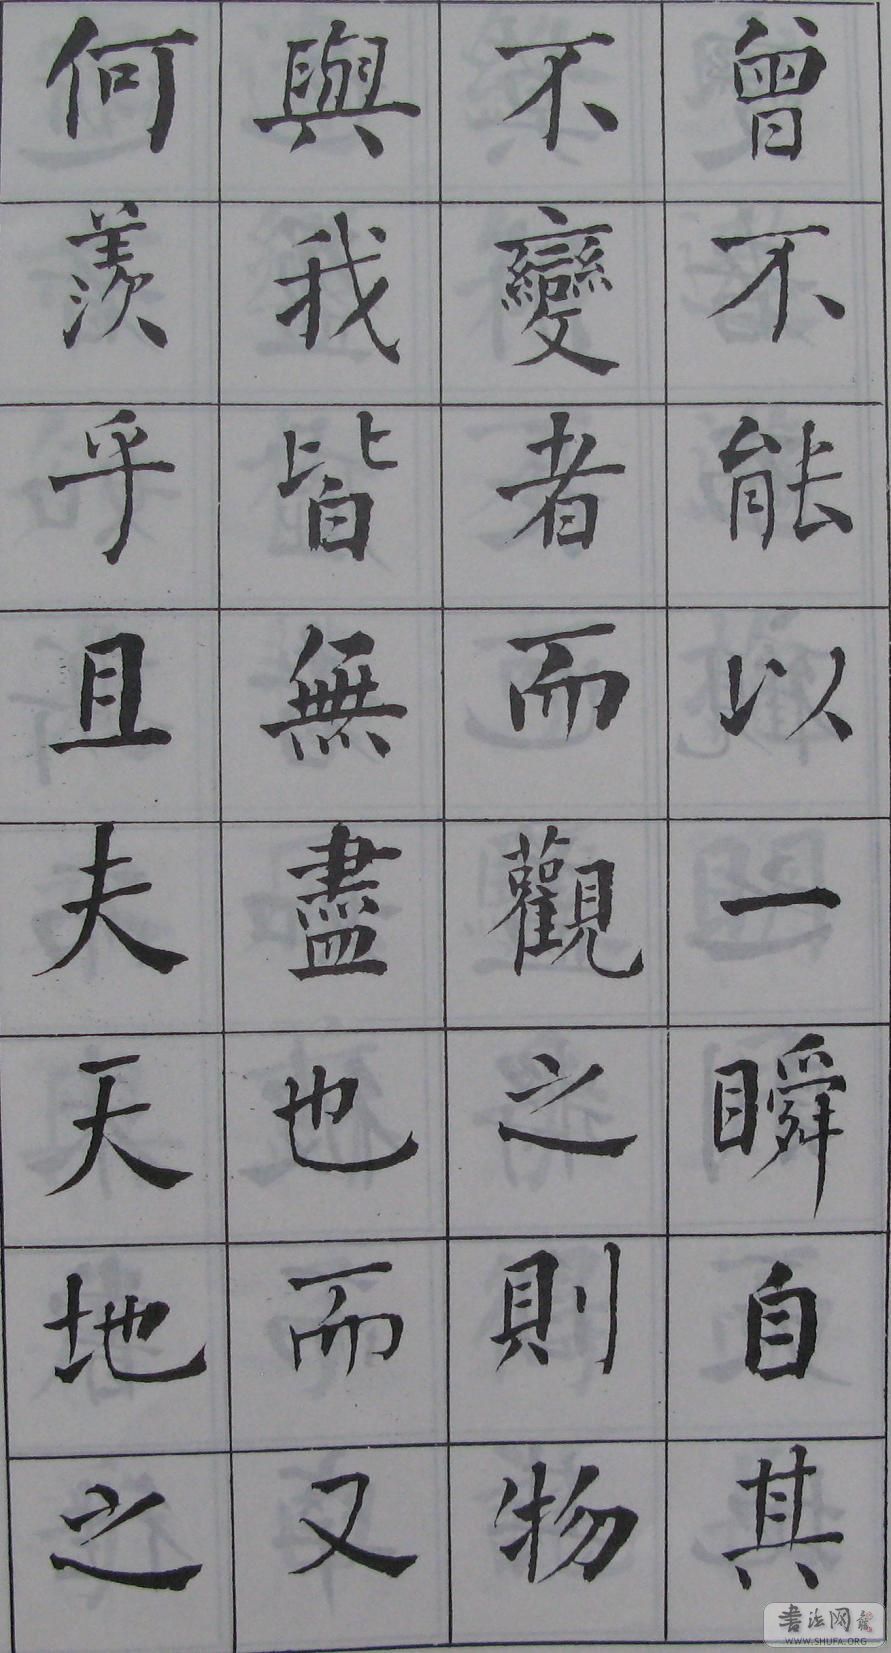 曾不能以一瞬自其
不變者而觀之則物
與我皆無盡也而又
何羨乎且夫天地之
書法网
WWW.SHUFA.ORG